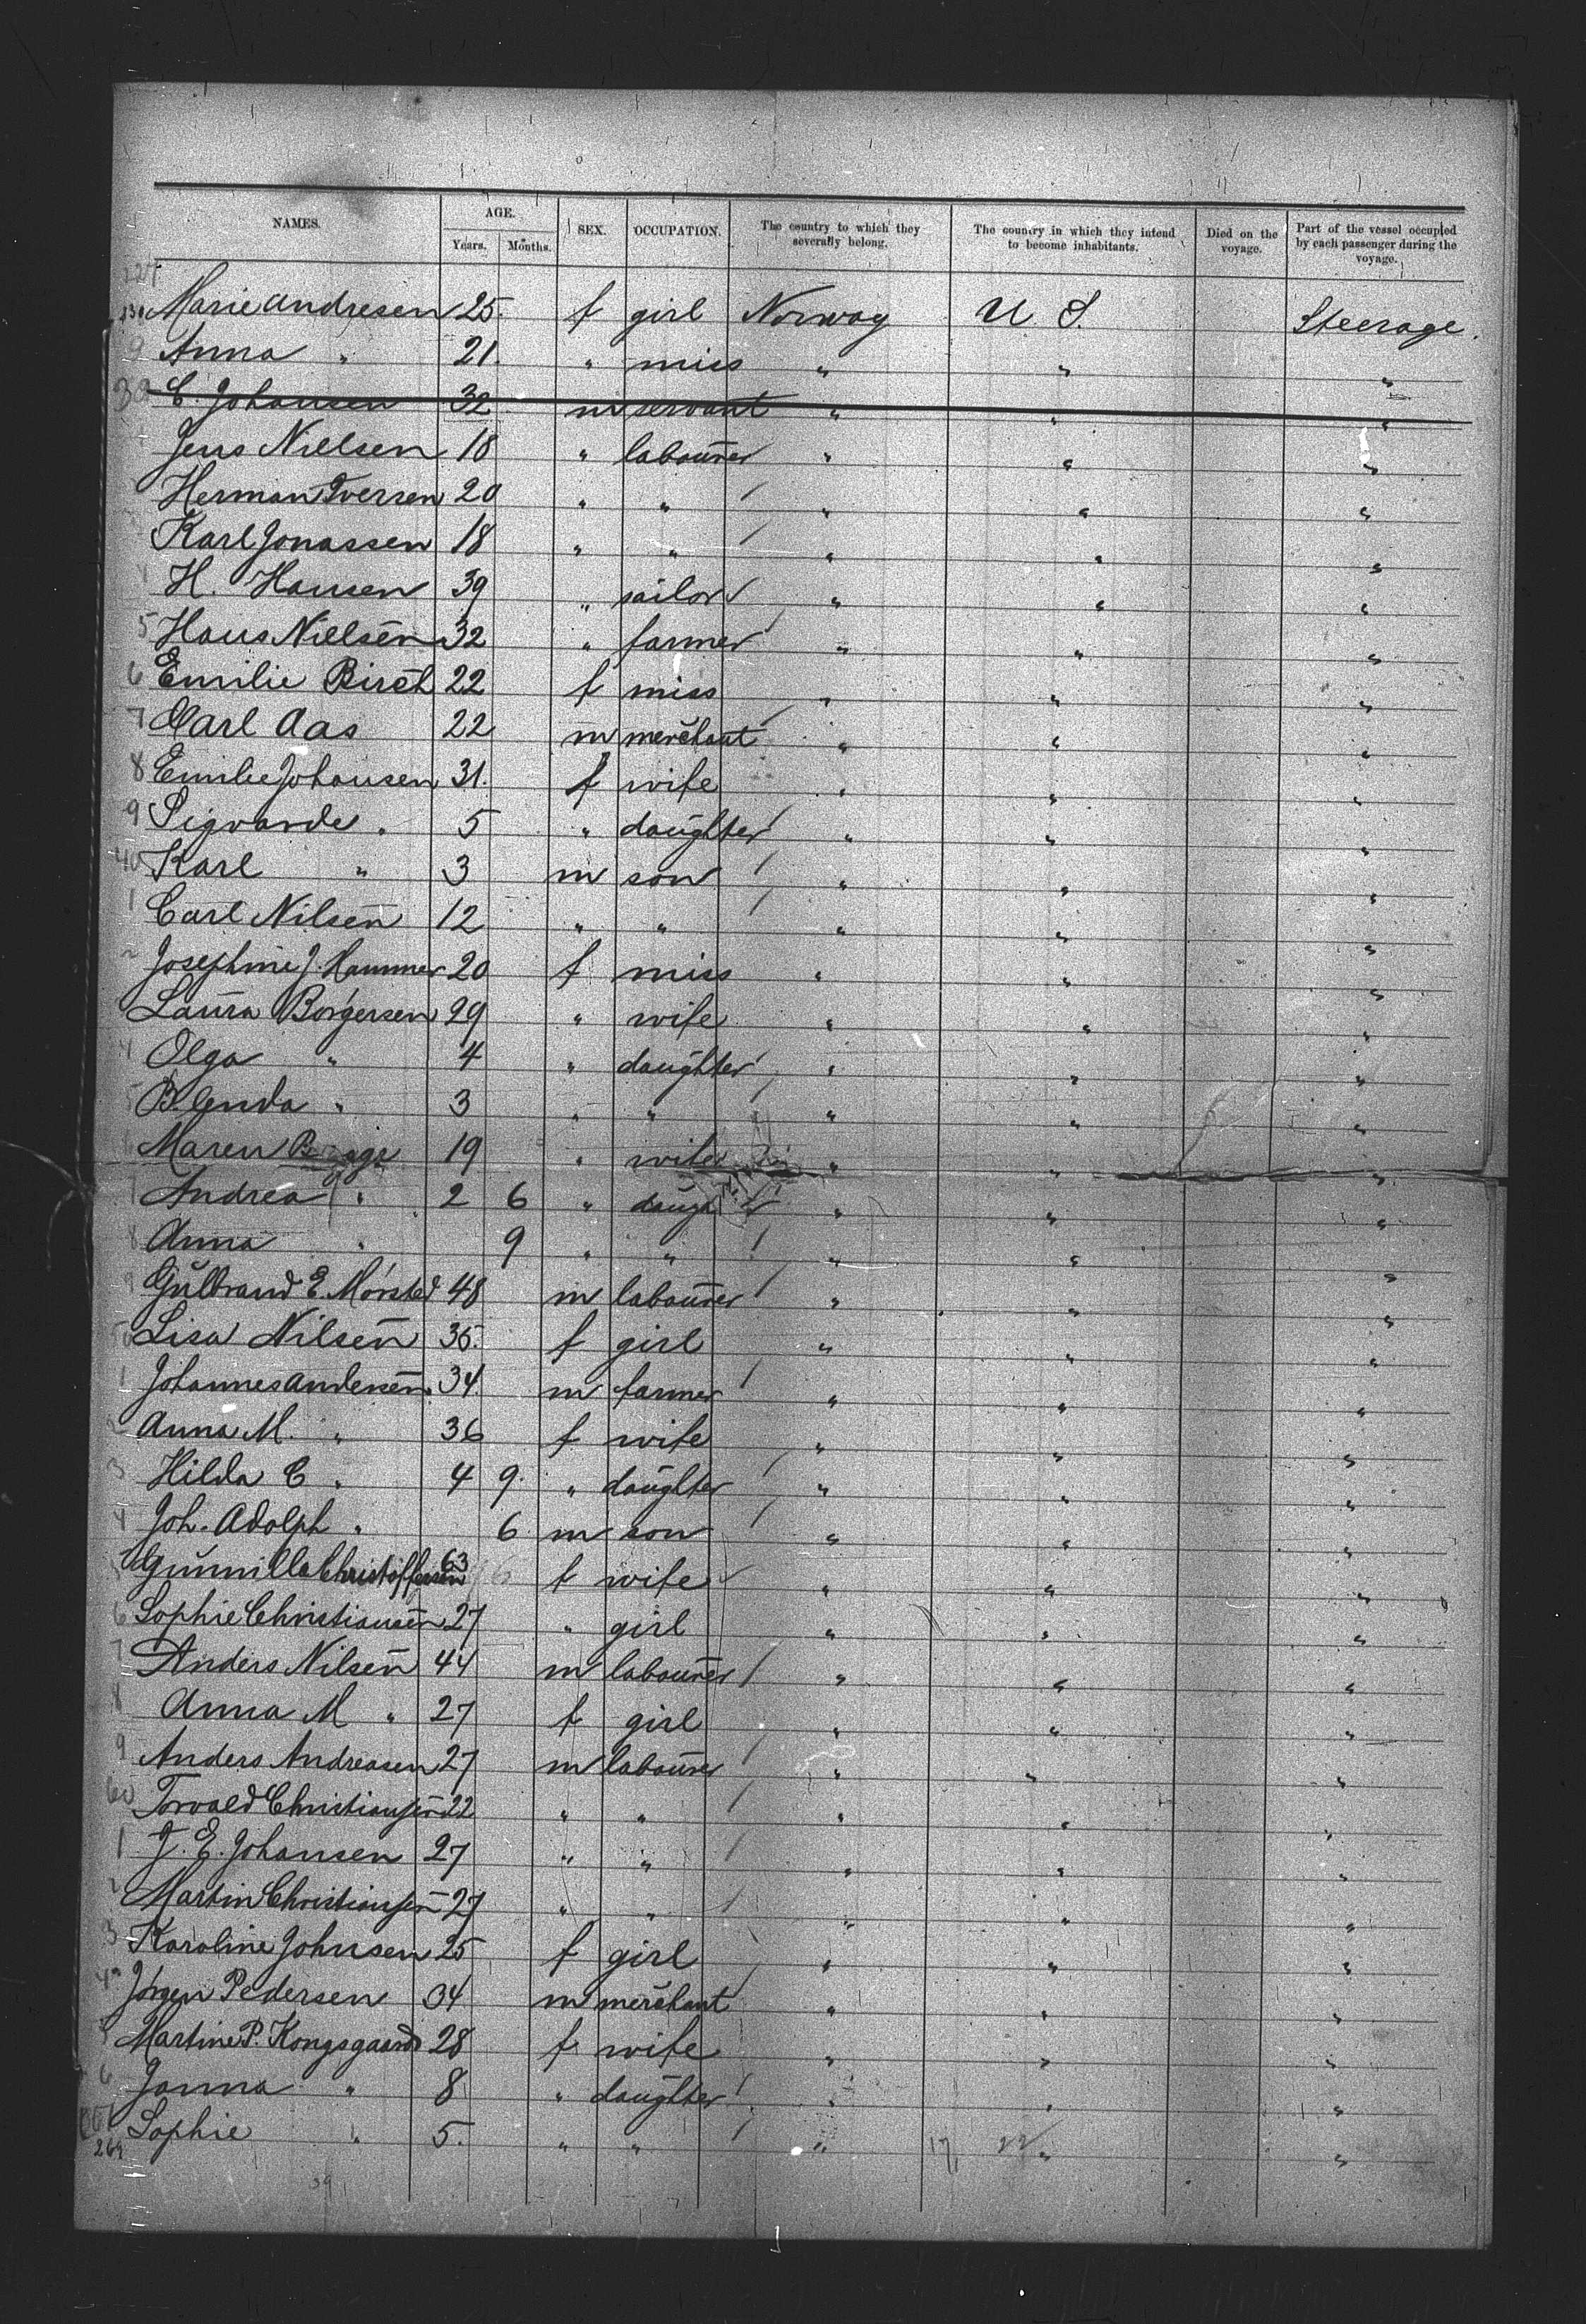 NAMES. AGE. SEX. OCCUPATION. The country to which they severally belong. The country in which they intend to become inhabitants. Died on the voyage. Part of the vessel occupied by each passenger during the voyage.
Years. Months.
Marie Andresen 25. f girl Norway U S. Steerage.
9 Anna " 21. " miss " " "
30 C. Johansen 32 m servant " " "
Jens Nielsen 18 " labourer " " "
Herman Iversen 20 " " " " "
Karl Jonassen 18 " " " " "
H. Hansen 39 " sailor " " "
5 Hans Nielsen 32 " farmer " " "
6 Emilie Birch 22 f miss " " "
7 Carl Aas 22 m merchant " " "
8 Emilie Johansen 31. f wife " " "
9 Sigvarde " 5 " daughter " " "
40 Karl " 3 m son " " "
1 Carl Nilsen 12 " " " " "
2 Josephine J. Hammer 20 f miss " " "
Laura Borgersen 29 " wife " " "
4 Olga " 4 " daughter " " "
5 Blenda " 3 " " " " "
Maren 19 " wife " " "
Andrea " 2 6 " daugh " " "
8 Anna " 9 " " " " "
9 Gulbrand E. Mørsted 48 m labourer " " "
50 Lisa Nilsen 35. f girl " " "
1 Johannes Andersen. 34. m farmer " " "
2 Anna M. " 36 f wife " " "
3 Hilda C " 4 9. " daughter " " "
4 Joh. Adolph " 6 m son " " "
Gunnilla Christoffersen 63 f wife " " "
6 Sophie Christiansen 27 " girl " " "
7 Anders Nilsen 44 m labourer " " "
8 Anna M " 27 f girl " " "
9 Anders Andreasen 27 m labourer " " "
60 Torvald Christiansen 22 " " " " "
1 J. E. Johansen 27 " " " " "
2 Martin Christiansen 27 " " " " "
3 Karoline Johnsen 25 f girl " " "
4 Jørgen Pedersen 34 m merchant " " "
5 Martine P. Kongsgaard 28 f wife " " "
6 Janna " 8 " daughter " " "
Sophie " 5. " " " " "
17 22